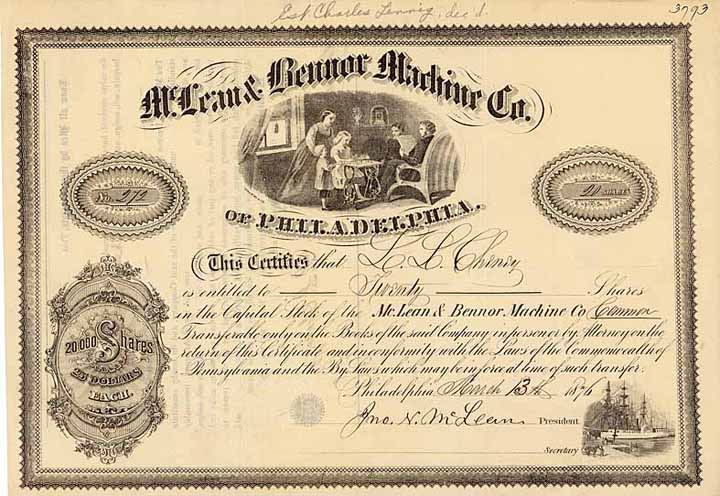 Est. Charles Lennig, dec'd.
3793
McLean & Bennor Machine Co.
OF PHILADELPHIA.
No. 272
20 SHARES
This Certifies that L. L. Cheney
is entitled to Twenty Shares
in the Capital Stock of the McLean & Bennor Machine Co Common
Transferable only on the Books of the said Company in person or by Attorney on the
return of this Certificate and in conformity with the Laws of the Commonwealth of
Pennsylvania and the By Laws which may be in force at time of such transfer.
20.000 Shares
25 DOLLARS
EACH.
Philadelphia March 13th 1876
Jno. N. McLean President
Secretary